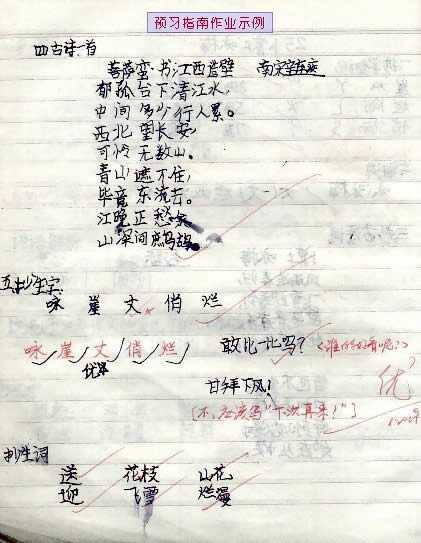 预习指南作业示例
四古诗一首
菩萨蛮·书江西造壁 南宋辛弃疾
郁孤台下清江水,
中间多少行人累。
西北望长安,
可怜无数山。
青山遮不住,
毕竟东流去。
江晚正愁余
山深闻鹧鸪。
五抄生字
咏 崖 丈 俏 烂
咏 崖 丈 俏 烂 敢比一比吗?
优
甘拜下风!
优
[不,应该写"下次再来!"]
抄生词
送 花枝 山花
迎 飞雪 烂漫